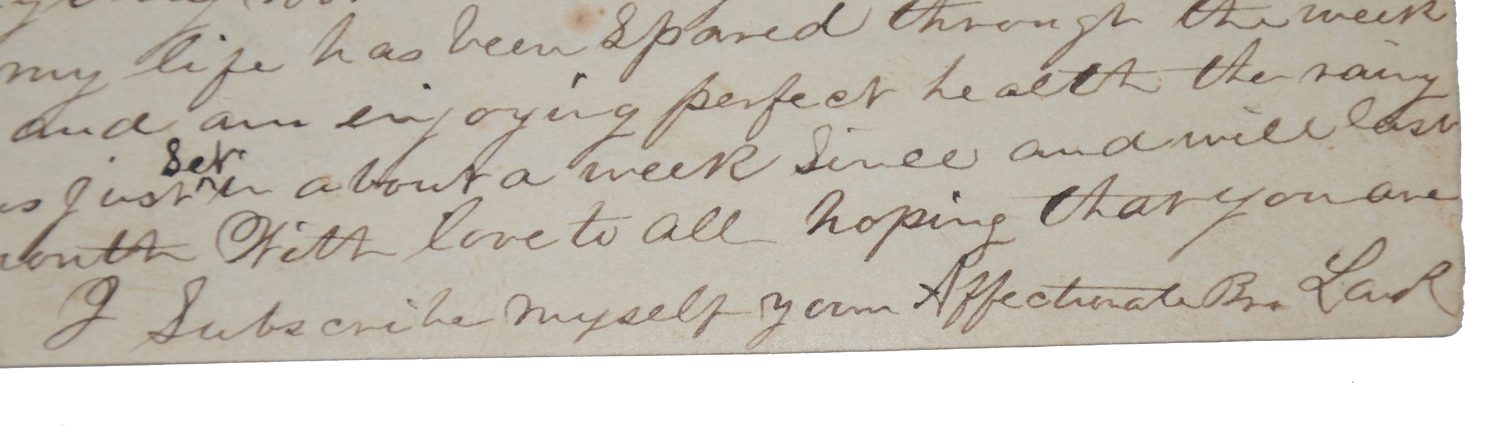 my life has been Spared through the week
and am enjoying perfect health the rainy
is just Set in about a week Since and will last
month With love to all hoping that you are
I Subscribe myself your Affectionate Bro